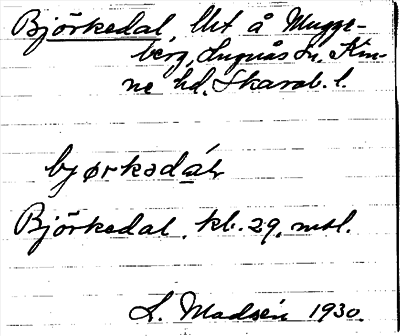 Björkedal, lht å Mugge-
berg, Lugnås sn. Kin-
ne hd. Skarab. l.
bjørkədáɫ
Björkedal. kb. 29. mtl.
L. Madsén 1930.